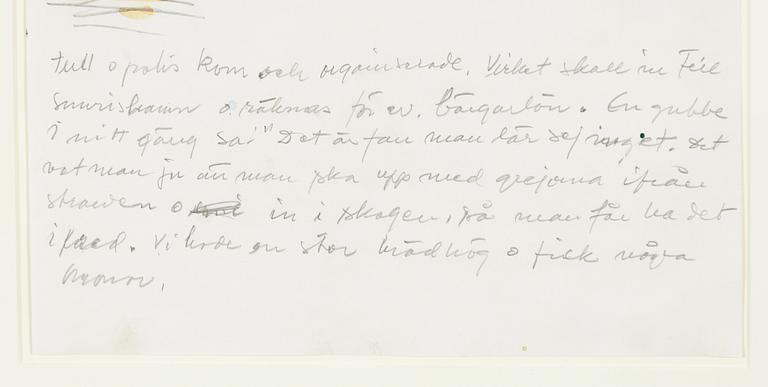 tull o polis kom och organiserade. Virket skall in till
Simrishamn o. räknas för ev. bärgarlön. En gubbe
i mitt gäng sa: "Det är fan man lär sej inget. Det
vet man ju än man ska upp med grejorna ifrån
stranden o in i skogen, så man får ha det
ifred. Vi hade en stor brädhög o fick några
kronor.